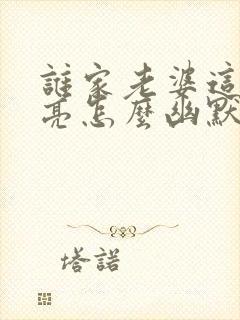 誰家老婆這
亮怎麼幽默
塔諾